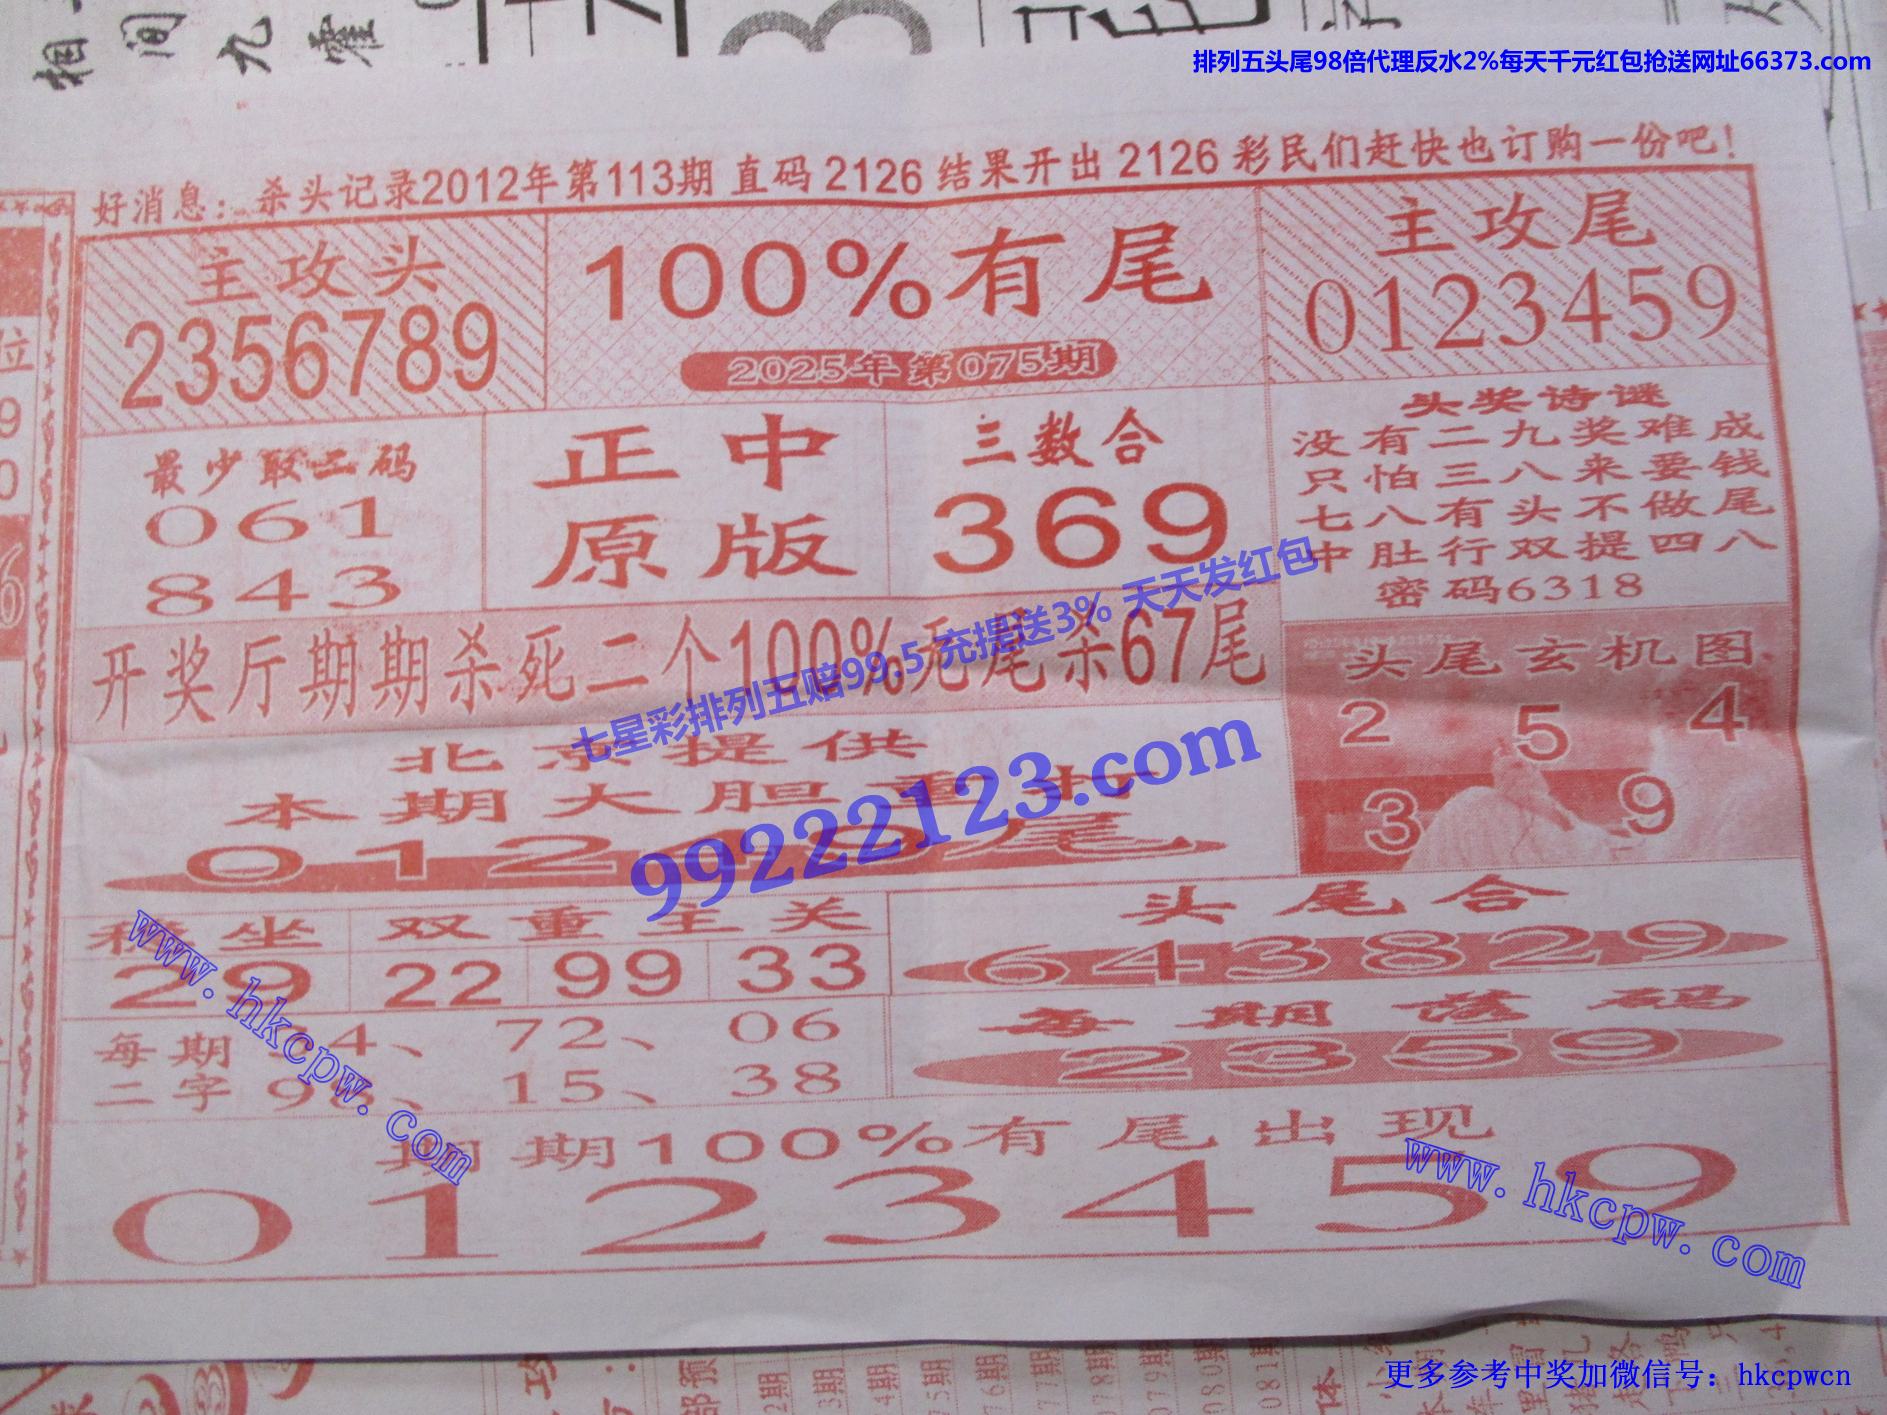 相间九霍
排列五头尾98倍代理反水2%每天千元红包抢送网址66373.com
好消息：杀头记录2012年第113期 直码 2126 结果开出 2126 彩民们赶快也订购一份吧！
主攻头
2356789
100%有尾
2025年第075期
主攻尾
0123459
最少取二码
061
843
正中
原版
三数合
369
头奖诗谜
没有二九奖难成
只怕三八来要钱
七八有头不做尾
中肚行双提四八
密码6318
开奖厅期期杀死二个100%无尾杀67尾
七星彩排列五赔99.5 充提送3% 天天发红包
99222123.com
头尾玄机图
2 5 4
3 9
北京提供
本期大胆重
012 尾
稳坐
29
双重主关
22 99 33
头尾合
643829
每期
二字
4、72、06
15、38
每期落码
2359
期期100%有尾出现
0123459
www.hkcpw.com
www.hkcpw.com
更多参考中奖加微信号：hkcpwcn